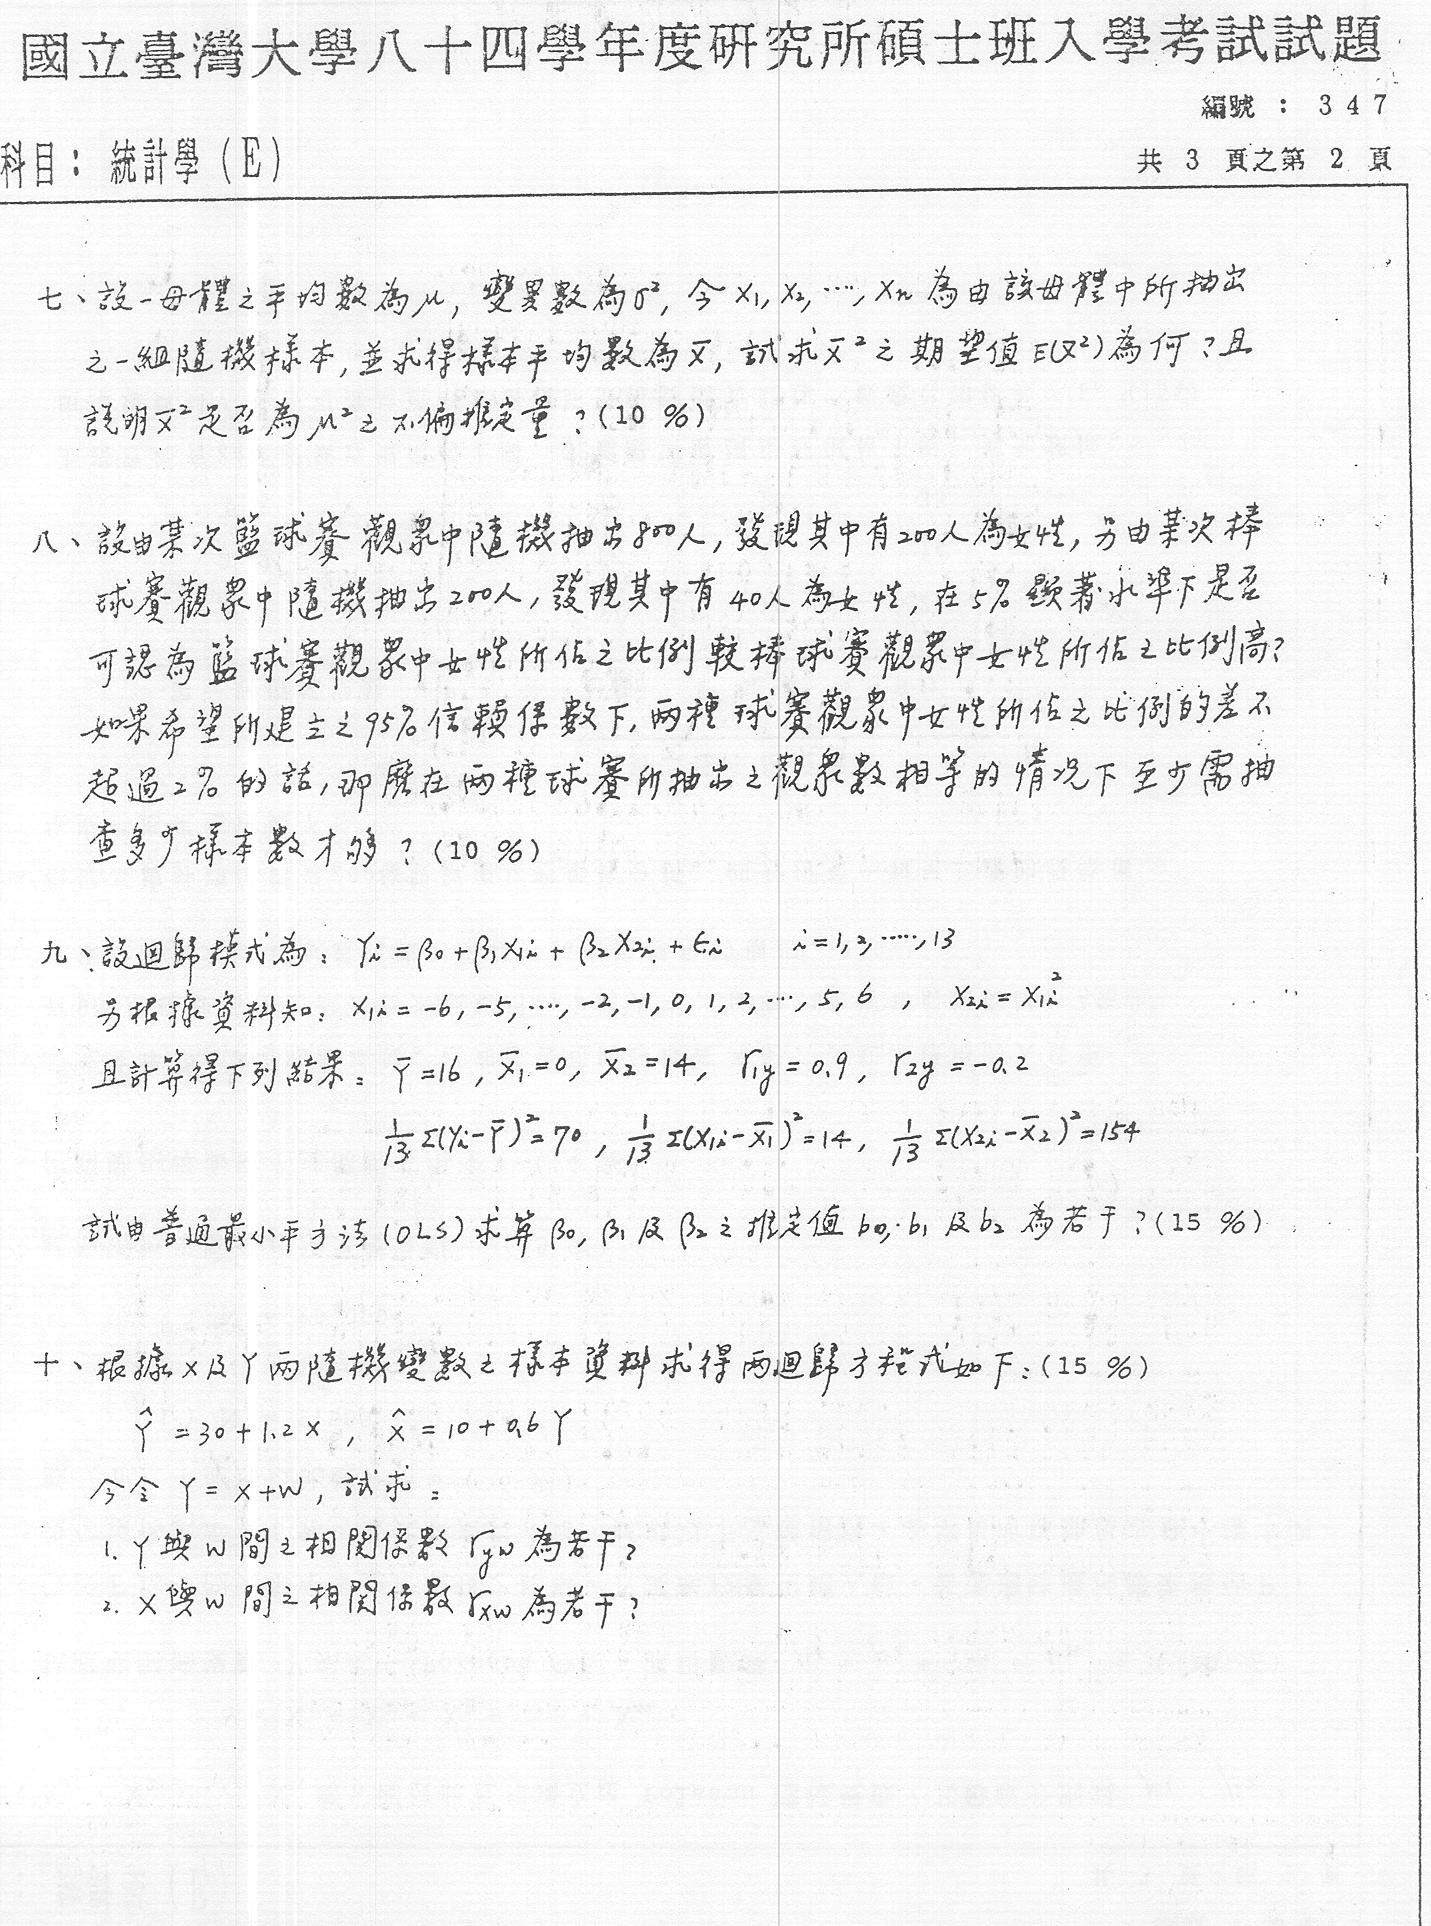 國立臺灣大學八十四學年度研究所碩士班入學考試試題
編號 : 3 4 7
科目: 統計學(E)
共 3 頁之第 2 頁
七、設一母體之平均數為μ, 變異數為σ², 今X₁, X₂, ⋯, Xn 為由該母體中所抽出
之一組隨機樣本, 並求得樣本平均數為X̄, 試求X̄²之期望值E(X̄²)為何?且
說明X̄²是否為μ²之不偏推定量?(10 %)
八、設由某次籃球賽觀眾中隨機抽出800人, 發現其中有200人為女性, 另由某次棒
球賽觀眾中隨機抽出200人, 發現其中有40人為女性, 在5%顯著水準下是否
可認為籃球賽觀眾中女性所佔之比例較棒球賽觀眾中女性所佔之比例高?
如果希望所建立之95%信賴係數下, 兩種球賽觀眾中女性所佔之比例的差不
超過2%的話, 那麼在兩種球賽所抽出之觀眾數相等的情況下至少需抽
查多少樣本數才夠?(10 %)
九、設迴歸模式為: Yi = β₀ + β₁X₁i + β₂X₂i + εi i = 1, 2, ⋯⋯, 13
另根據資料知: X₁i = -6, -5, ⋯, -2, -1, 0, 1, 2, ⋯, 5, 6 , X₂i = X₁i²
且計算得下列結果: Ȳ = 16 , X̄₁ = 0, X̄₂ = 14, r₁y = 0.9, r₂y = -0.2
1/13 Σ(Yi - Ȳ)² = 70 , 1/13 Σ(X₁i - X̄₁)² = 14, 1/13 Σ(X₂i - X̄₂)² = 154
試由普通最小平方法(OLS)求算 β₀, β₁ 及 β₂ 之推定值 b₀, b₁ 及 b₂ 為若干?(15 %)
十、根據X及Y兩隨機變數之樣本資料求得兩迴歸方程式如下:(15 %)
Ŷ = 30 + 1.2 X , X̂ = 10 + 0.6 Y
今令 Y = X + W, 試求:
1. Y與W間之相關係數 ryw 為若干?
2. X與W間之相關係數 rxw 為若干?